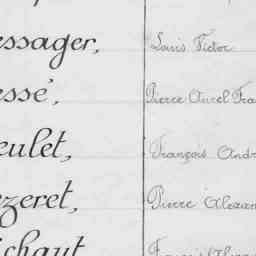 essager, Louis Victor
essé, Pierre Aurel Fra
eulet, François Andr
ezeret, Pierre Alexan
ichaut